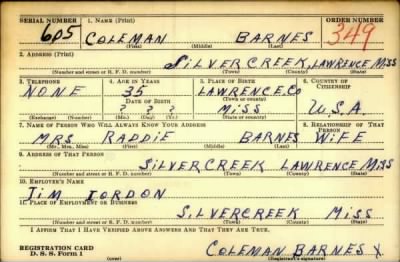 SERIAL NUMBER 1. NAME (Print) ORDER NUMBER
605 COLEMAN BARNES 349
(First) (Middle) (Last)
2. ADDRESS (Print)
SILVERCREEK, LAWRENCE MISS
(Number and street or R. F. D. number) (Town) (County) (State)
3. TELEPHONE 4. AGE IN YEARS 5. PLACE OF BIRTH 6. COUNTRY OF CITIZENSHIP
NONE 35 LAWRENCE.CO
DATE OF BIRTH (Town or county)
? ? ? MISS U.S.A.
(Exchange) (Number) (Mo.) (Day) (Yr.) (State or country)
7. NAME OF PERSON WHO WILL ALWAYS KNOW YOUR ADDRESS 8. RELATIONSHIP OF THAT PERSON
MRS RADDIE BARNES WIFE
(Mr., Mrs., Miss) (First) (Middle) (Last)
9. ADDRESS OF THAT PERSON
SILVERCREEK LAWRENCE MISS
(Number and street or R. F. D. number) (Town) (County) (State)
10. EMPLOYER'S NAME
JIM TORDON
11. PLACE OF EMPLOYMENT OR BUSINESS
SILVERCREEK MISS
(Number and street or R. F. D. number) (Town) (County) (State)
I AFFIRM THAT I HAVE VERIFIED ABOVE ANSWERS AND THAT THEY ARE TRUE.
REGISTRATION CARD
D. S. S. Form 1 (over) COLEMAN BARNES X
(Registrant's signature)